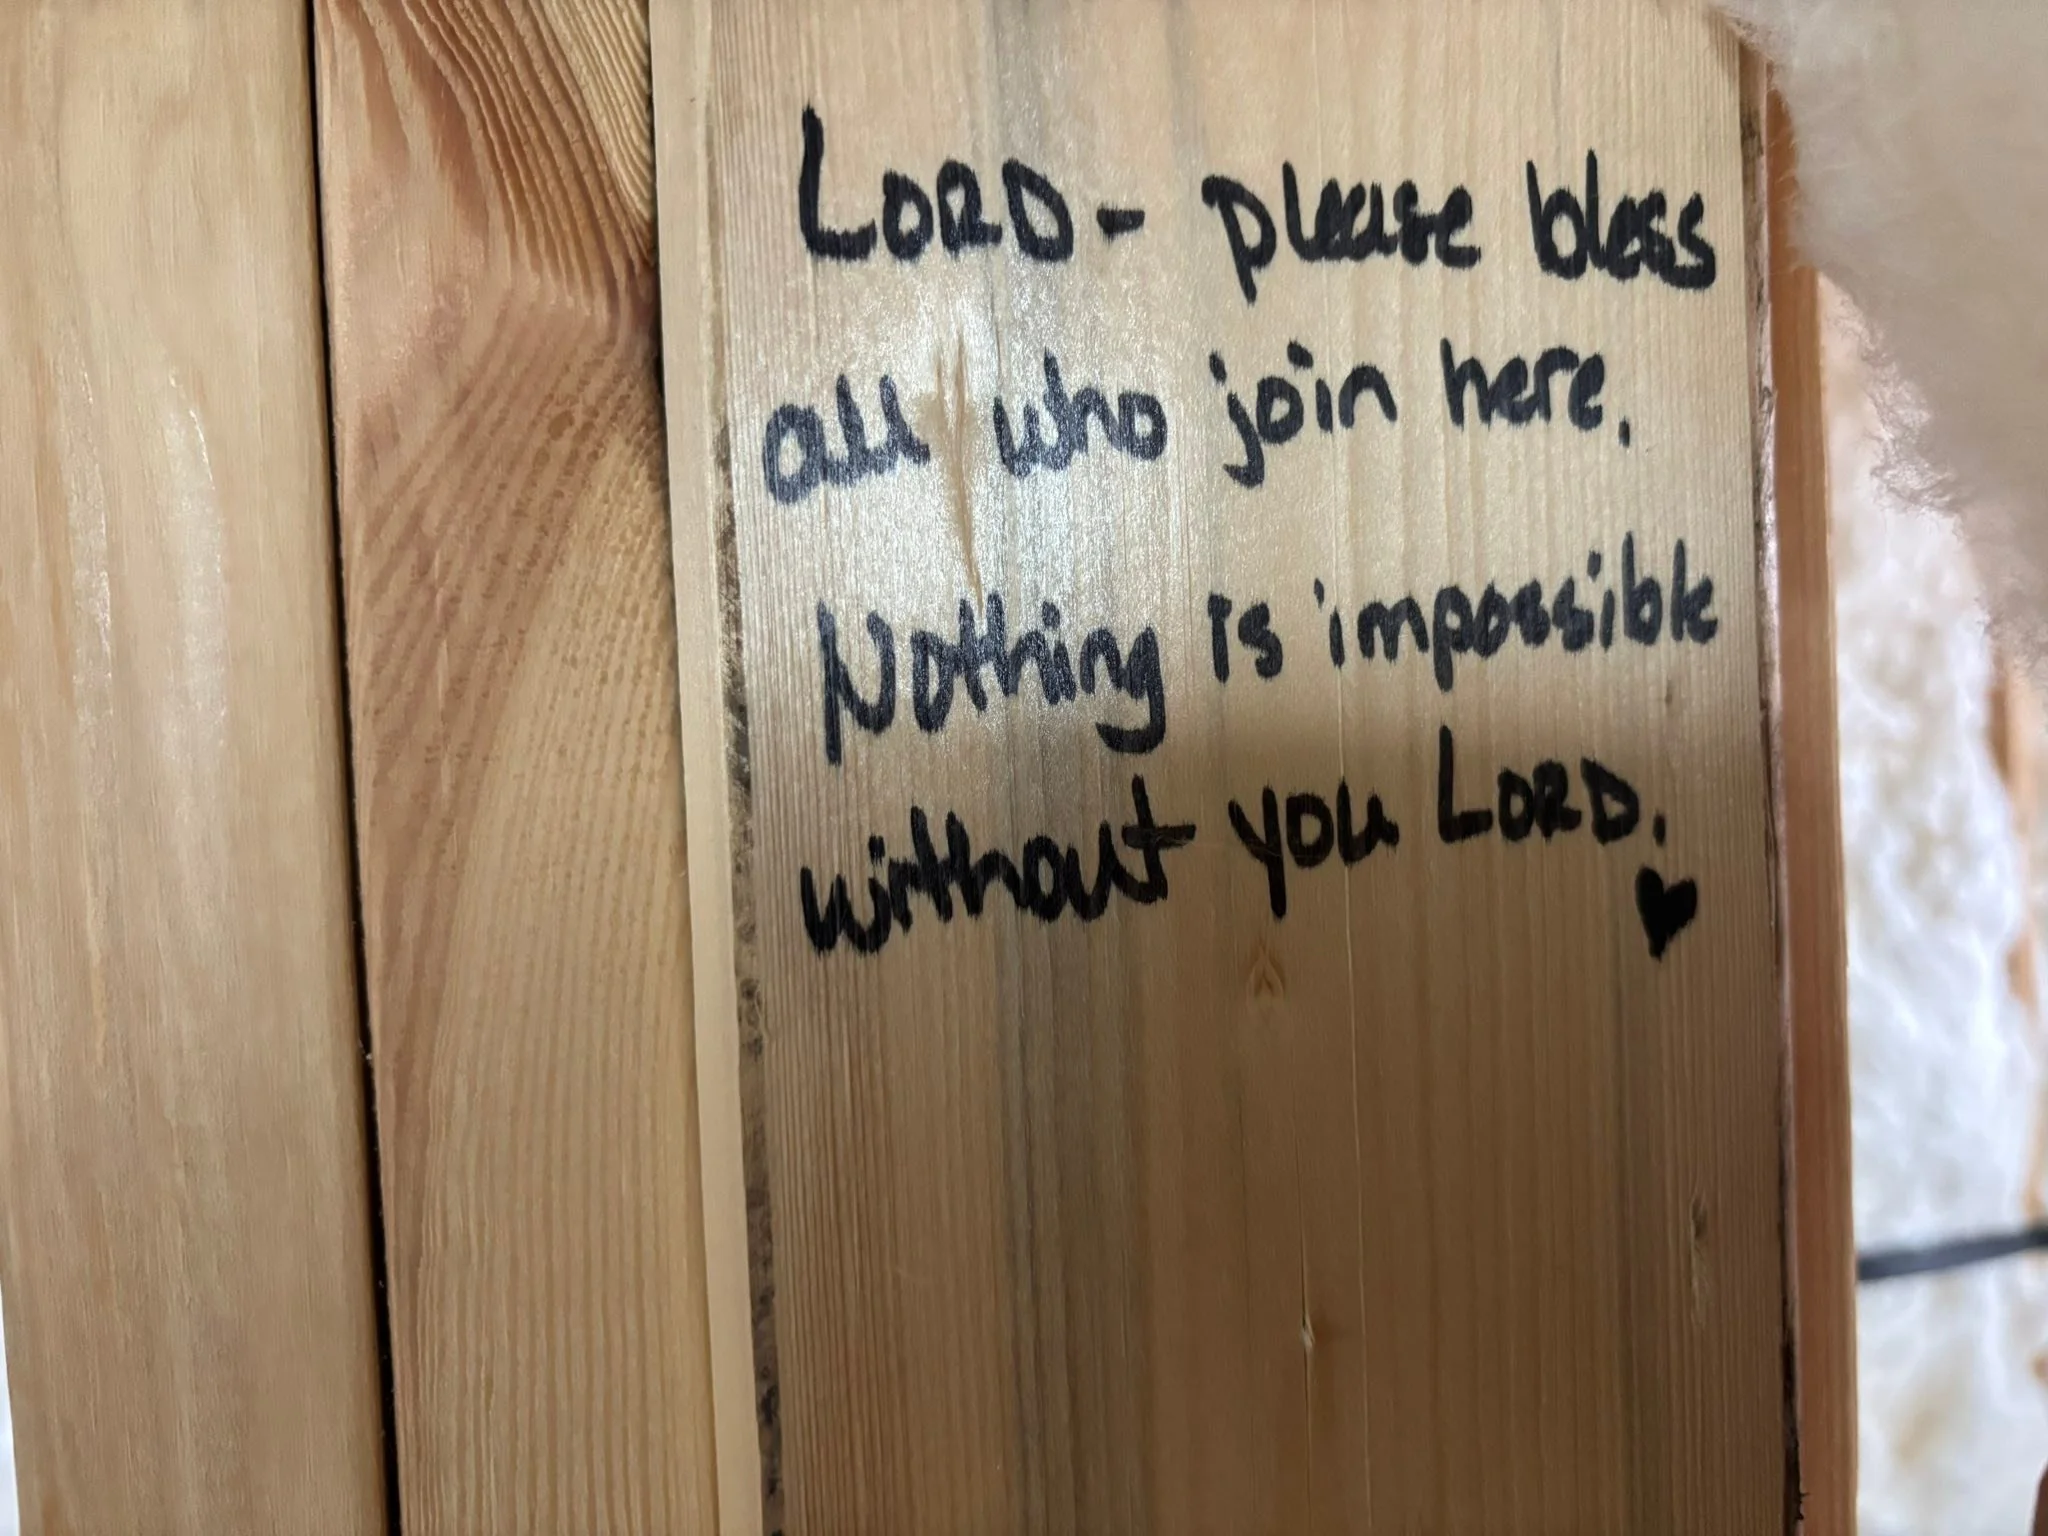 LORD - please bless
all who join here.
Nothing is impossible
without you LORD.
♥